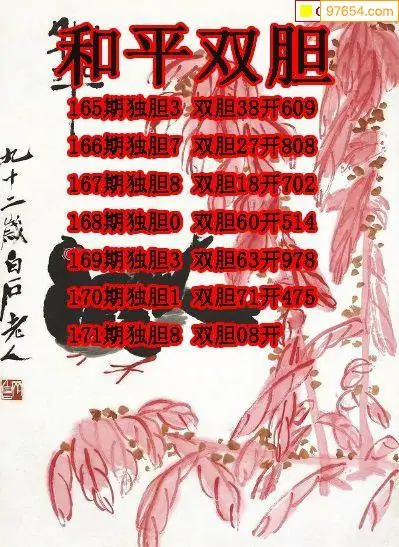 97654.com
和平双胆
165期独胆3 双胆38开609
166期独胆7 双胆27开808
167期独胆8 双胆18开702
168期独胆0 双胆60开514
169期独胆3 双胆63开978
170期独胆1 双胆71开475
171期独胆8 双胆08开
九十二岁白石老人